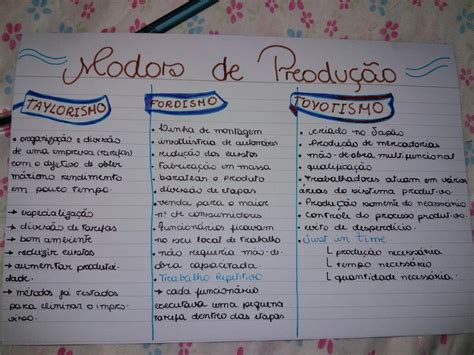 Modos de Produção
TAYLORISMO
• organização e divisão
de uma empresa (tarefas)
com o objetivo de obter
máximo rendimento
em pouco tempo.
→ especialização
→ divisão de tarefas
→ bom ambiente
→ reduzir custos
→ aumentar produtivi-
dade.
→ métodos já testados
para eliminar o impro-
viso.
FORDISMO
• Linha de montagem
• indústria de automóveis
• redução dos custos
• Fabricação em massa
• baratear o produto
• divisão de etapas
• venda para o maior
nº de consumidores
• Funcionários ficavam
no seu local de trabalho
• não requeria mão-de-
obra capacitada.
• Trabalho Repetitivo
→ cada funcionário
executava uma pequena
tarefa dentro das etapas
TOYOTISMO
• criado no Japão
• Produção de mercadorias
• mão-de-obra multifuncional
• qualificação
• Trabalhadores atuam em várias
áreas do sistema produtivo.
• Produção somente do necessário
• controle do processo produtivo.
• evito de desperdício.
• Just in time
produção necessária
tempo necessário
quantidade necessária.